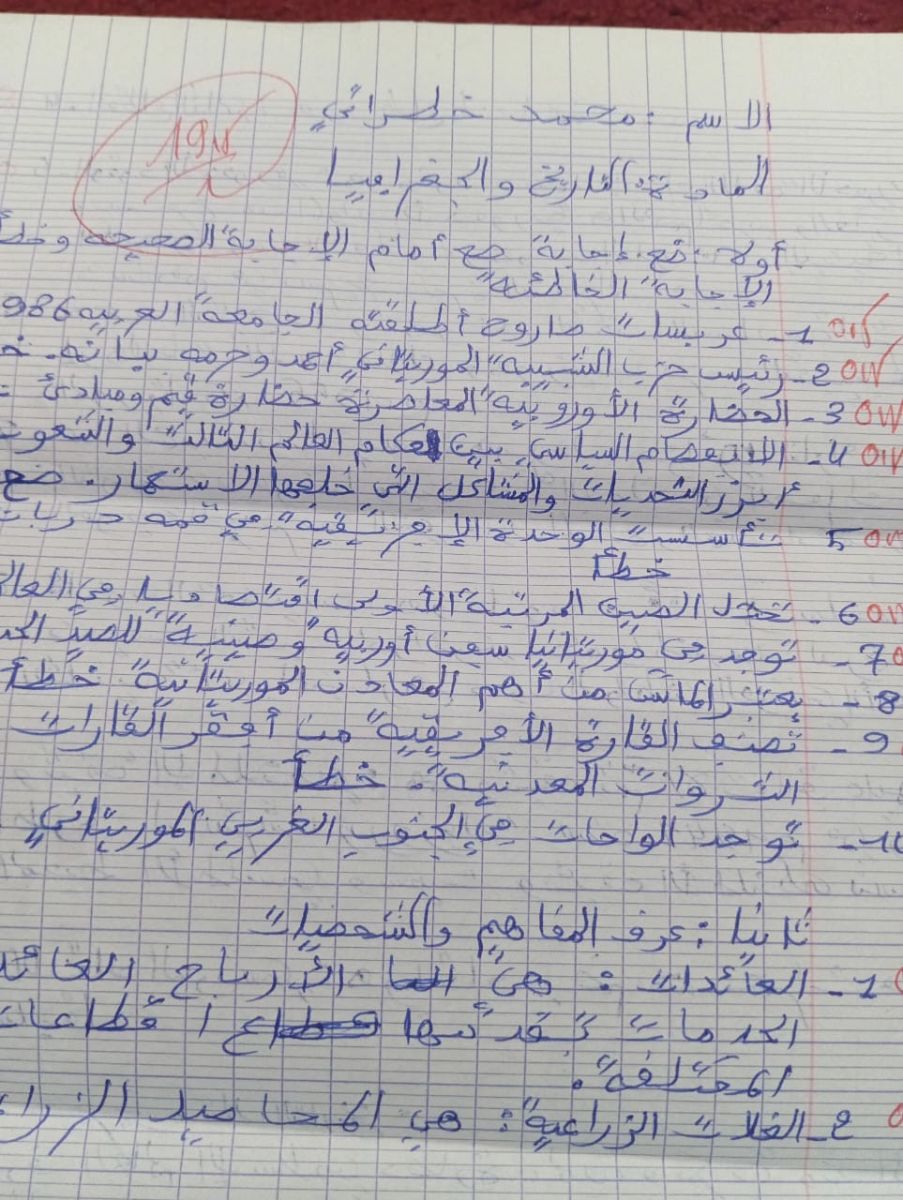 الاسم: محمد خطراتي
المادة: التاريخ والجغرافيا
أولا: ضع إجابة صح أمام الإجابة الصحيحة وخطأ
الإجابة الخاطئة
1- عربسات صاروخ أطلقته الجامعة العربية 986
2- رئيس حزب الشبيبة الموريتاني أحمد وحرمه ببانه.
3- الحضارة الأوروبية المعاصرة حضارة قيم ومبادئ
4- الانفصام السياسي بين حكام العالم الثالث والشعوب
أبرز التحديات والمشاكل التي خلفها الاستعمار. صح
5 تأسست الوحدة الإفريقية في قمة
خطأ
6- تحتل الصين المرتبة الأولى اقتصاديا في العالم
7- توجد في موريتانيا سفن أوربية وصينية للصيد
8- يعتبر الماس من أهم المعادن الموريتانية خطأ
9- تصنف القارة الأفريقية من أفقر القارات
الثروات المعدنية. خطأ
10- توجد الواحات في الجنوب الغربي الموريتاني
ثانيا: عرف المفاهيم والشخصيات
1- العائدات: هي الأرباح
الخدمات تقدمها قطاعات
المختلفة.
2- الغلات الزراعية: هي المحاصيل